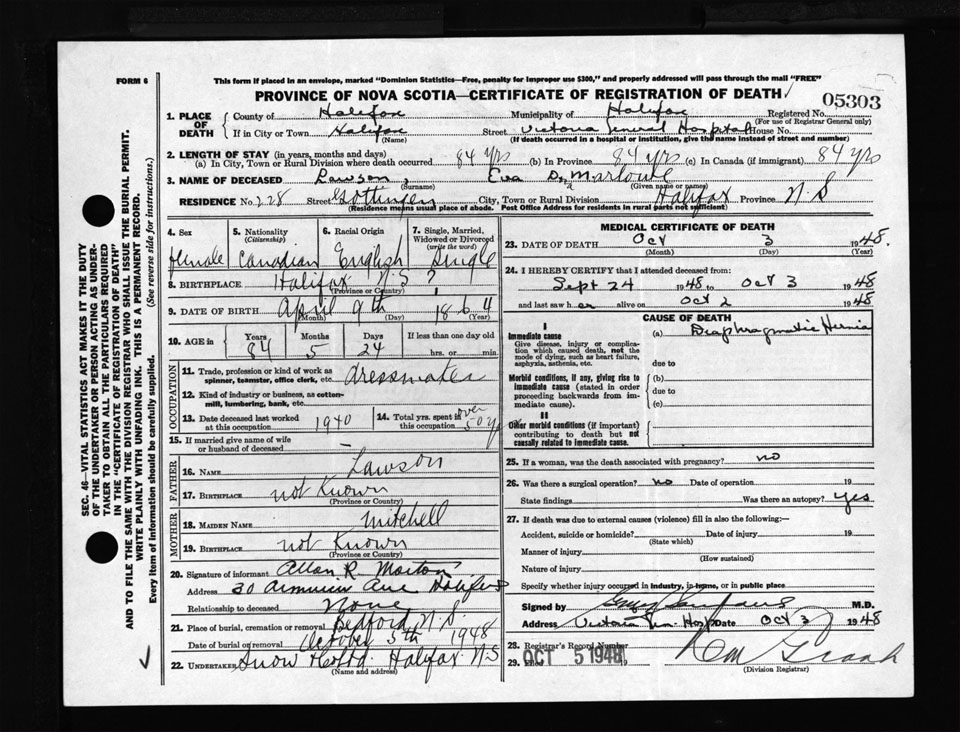 FORM 6
This form if placed in an envelope, marked "Dominion Statistics—Free, penalty for improper use $300," and properly addressed will pass through the mail "FREE"
PROVINCE OF NOVA SCOTIA—CERTIFICATE OF REGISTRATION OF DEATH
05303
1. PLACE OF DEATH County of Halifax Municipality of Halifax Registered No.
(For use of Registrar General only)
If in City or Town Halifax Street Victoria General Hospital House No.
(Name) (If death occurred in a hospital or institution, give the name instead of street and number)
2. LENGTH OF STAY (in years, months and days)
(a) In City, Town or Rural Division where death occurred 84 yrs (b) In Province 84 yrs (c) In Canada (if immigrant) 84 yrs
3. NAME OF DECEASED Lawson, Eva D.
(Surname) (Given name or names)
RESIDENCE No. 228 Street Gottingen City, Town or Rural Division Halifax Province N.S
(Residence means usual place of abode. Post Office Address for residents in rural parts not sufficient)
4. Sex Female
5. Nationality (Citizenship) Canadian
6. Racial Origin English
7. Single, Married, Widowed or Divorced (write the word) Single
8. BIRTHPLACE Halifax N.S ?
(Province or Country)
9. DATE OF BIRTH April 9th 1864
(Month) (Day) (Year)
10. AGE in Years Months Days If less than one day old
84 5 24 hrs. or min.
OCCUPATION
11. Trade, profession or kind of work as spinner, teamster, office clerk, etc. dressmaker
12. Kind of industry or business, as cotton-mill, lumbering, bank, etc.
13. Date deceased last worked at this occupation 1940
14. Total yrs. spent in this occupation over 50 yrs
15. If married give name of wife or husband of deceased
FATHER
16. NAME Lawson
17. BIRTHPLACE not Known
(Province or Country)
MOTHER
18. MAIDEN NAME Mitchell
19. BIRTHPLACE not Known
(Province or Country)
20. Signature of informant Allan R. Morton
Address 30 Ave Halifax
Relationship to deceased None
21. Place of burial, cremation or removal Bedford N.S.
Date of burial or removal October 5th 1948
22. UNDERTAKER Snow Halifax N.S
(Name and address)
MEDICAL CERTIFICATE OF DEATH
23. DATE OF DEATH Oct 3 1948.
(Month) (Day) (Year)
24. I HEREBY CERTIFY that I attended deceased from:
Sept 24 1948 to Oct 3 1948
and last saw h er alive on Oct 2 1948
CAUSE OF DEATH
I
Immediate cause
Give disease, injury or complication which caused death, not the mode of dying, such as heart failure, asphyxia, asthenia, etc.
(a) Diaphragmatic Hernia
due to
Morbid conditions, if any, giving rise to immediate cause (stated in order proceeding backwards from immediate cause).
(b)
due to
(c)
II
Other morbid conditions (if important) contributing to death but not causally related to immediate cause.
25. If a woman, was the death associated with pregnancy? no
26. Was there a surgical operation? no Date of operation 19
State findings Was there an autopsy? yes
27. If death was due to external causes (violence) fill in also the following:—
Accident, suicide or homicide? Date of injury 19
(State which)
Manner of injury
(How sustained)
Nature of injury
Specify whether injury occurred in industry, in home, or in public place
Signed by M.D.
Address Victoria Gen. Hosp Date Oct 3 1948
28. Registrar's Record Number
29. OCT 5 1948 19
(Division Registrar)
SEC. 46—VITAL STATISTICS ACT MAKES IT THE DUTY
OF THE UNDERTAKER OR PERSON ACTING AS UNDER-
TAKER TO OBTAIN ALL THE PARTICULARS REQUIRED
IN THE "CERTIFICATE OF REGISTRATION OF DEATH"
AND TO FILE THE SAME WITH THE DIVISION REGISTRAR WHO SHALL ISSUE THE BURIAL PERMIT.
WRITE PLAINLY WITH UNFADING INK. THIS IS A PERMANENT RECORD.
Every item of information should be carefully supplied. (See reverse side for instructions.)